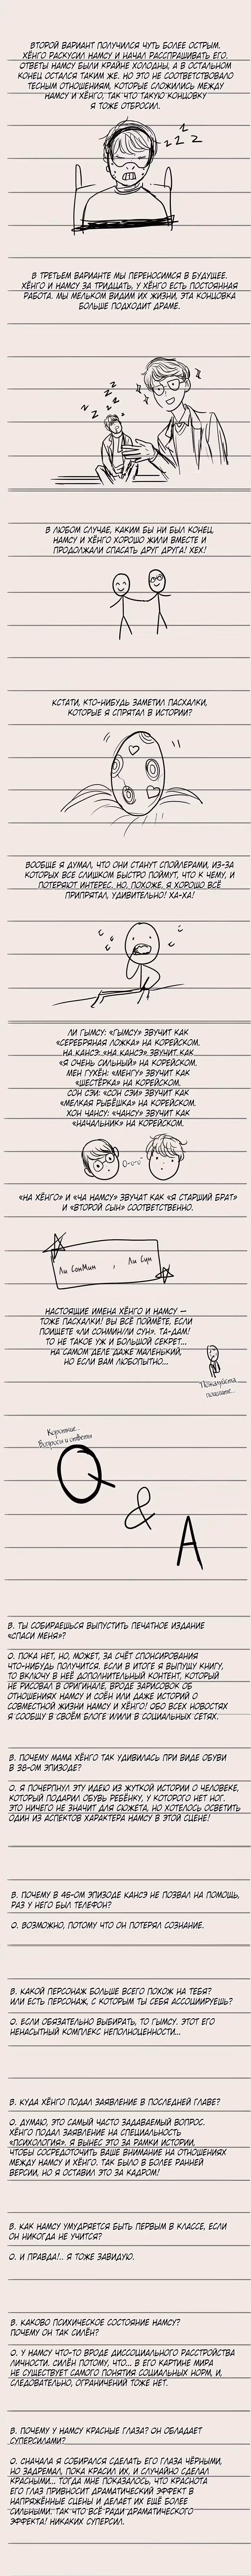 ВТОРОЙ ВАРИАНТ ПОЛУЧИЛСЯ ЧУТЬ БОЛЕЕ ОСТРЫМ.
ХЁНГО РАСКУСИЛ НАМСУ И НАЧАЛ РАССПРАШИВАТЬ ЕГО.
ОТВЕТЫ НАМСУ БЫЛИ КРАЙНЕ ХОЛОДНЫ, А В ОСТАЛЬНОМ
КОНЕЦ ОСТАЛСЯ ТАКИМ ЖЕ. НО ЭТО НЕ СООТВЕТСТВОВАЛО
ТЕСНЫМ ОТНОШЕНИЯМ, КОТОРЫЕ СЛОЖИЛИСЬ МЕЖДУ
НАМСУ И ХЁНГО, ТАК ЧТО ТАКУЮ КОНЦОВКУ
Я ТОЖЕ ОТБРОСИЛ.
z z z
В ТРЕТЬЕМ ВАРИАНТЕ МЫ ПЕРЕНОСИМСЯ В БУДУЩЕЕ.
ХЁНГО И НАМСУ ЗА ТРИДЦАТЬ, У ХЁНГО ЕСТЬ ПОСТОЯННАЯ
РАБОТА. МЫ МЕЛЬКОМ ВИДИМ ИХ ЖИЗНИ, ЭТА КОНЦОВКА
БОЛЬШЕ ПОДХОДИТ ДРАМЕ.
В ЛЮБОМ СЛУЧАЕ, КАКИМ БЫ НИ БЫЛ КОНЕЦ,
НАМСУ И ХЁНГО ХОРОШО ЖИЛИ ВМЕСТЕ И
ПРОДОЛЖАЛИ СПАСАТЬ ДРУГ ДРУГА! ХЕХ!
КСТАТИ, КТО-НИБУДЬ ЗАМЕТИЛ ПАСХАЛКИ,
КОТОРЫЕ Я СПРЯТАЛ В ИСТОРИИ?
ВООБЩЕ Я ДУМАЛ, ЧТО ОНИ СТАНУТ СПОЙЛЕРАМИ, ИЗ-ЗА
КОТОРЫХ ВСЕ СЛИШКОМ БЫСТРО ПОЙМУТ, ЧТО К ЧЕМУ, И
ПОТЕРЯЮТ ИНТЕРЕС. НО, ПОХОЖЕ, Я ХОРОШО ВСЁ
ПРИПРЯТАЛ, УДИВИТЕЛЬНО! ХА-ХА!
ЛИ ГЫМСУ: «ГЫМСУ» ЗВУЧИТ КАК
«СЕРЕБРЯНАЯ ЛОЖКА» НА КОРЕЙСКОМ.
НА КАНСЭ: «НА КАНСЭ» ЗВУЧИТ КАК
«Я ОЧЕНЬ СИЛЬНЫЙ» НА КОРЕЙСКОМ.
МЕН ГУХЁН: «МЕНГУ» ЗВУЧИТ КАК
«ШЕСТЁРКА» НА КОРЕЙСКОМ.
СОН СЭИ: «СОН СЭИ» ЗВУЧИТ КАК
«МЕЛКАЯ РЫБЁШКА» НА КОРЕЙСКОМ.
ХОН ЧАНСУ: «ЧАНСУ» ЗВУЧИТ КАК
«НАЧАЛЬНИК» НА КОРЕЙСКОМ.
«НА ХЁНГО» И «ЧА НАМСУ» ЗВУЧАТ КАК «Я СТАРШИЙ БРАТ»
И «ВТОРОЙ СЫН» СООТВЕТСТВЕННО.
Ли СонМин , Ли Сун
НАСТОЯЩИЕ ИМЕНА ХЁНГО И НАМСУ —
ТОЖЕ ПАСХАЛКИ! ВЫ ВСЁ ПОЙМЁТЕ, ЕСЛИ
ПОИЩЕТЕ «ЛИ СОНМИН/ЛИ СУН». ТА-ДАМ!
ТО НЕ ТАКОЕ УЖ И БОЛЬШОЙ СЕКРЕТ...
НА САМОМ ДЕЛЕ ДАЖЕ МАЛЕНЬКИЙ,
НО ЕСЛИ ВАМ ЛЮБОПЫТНО...
Пожалуйста
поищите...
Короткие..
Вопросы и ответы
Q
&
A
В. ТЫ СОБИРАЕШЬСЯ ВЫПУСТИТЬ ПЕЧАТНОЕ ИЗДАНИЕ
«СПАСИ МЕНЯ»?
О. ПОКА НЕТ, НО, МОЖЕТ, ЗА СЧЁТ СПОНСИРОВАНИЯ
ЧТО-НИБУДЬ ПОЛУЧИТСЯ. ЕСЛИ В ИТОГЕ Я ВЫПУЩУ КНИГУ,
ТО ВКЛЮЧУ В НЕЁ ДОПОЛНИТЕЛЬНЫЙ КОНТЕНТ, КОТОРЫЙ
НЕ РИСОВАЛ В ОРИГИНАЛЕ, ВРОДЕ ЗАРИСОВОК ОБ
ОТНОШЕНИЯХ НАМСУ И СОЁН ИЛИ ДАЖЕ ИСТОРИЙ О
СОВМЕСТНОЙ ЖИЗНИ НАМСУ И ХЁНГО! ОБО ВСЕХ НОВОСТЯХ
Я СООБЩУ В СВОЁМ БЛОГЕ И/ИЛИ В СОЦИАЛЬНЫХ СЕТЯХ.
В. ПОЧЕМУ МАМА ХЁНГО ТАК УДИВИЛАСЬ ПРИ ВИДЕ ОБУВИ
В 38-ОМ ЭПИЗОДЕ?
О. Я ПОЧЕРПНУЛ ЭТУ ИДЕЮ ИЗ ЖУТКОЙ ИСТОРИИ О ЧЕЛОВЕКЕ,
КОТОРЫЙ ПОДАРИЛ ОБУВЬ РЕБЁНКУ, У КОТОРОГО НЕТ НОГ.
ЭТО НИЧЕГО НЕ ЗНАЧИТ ДЛЯ СЮЖЕТА, НО ХОТЕЛОСЬ ОСВЕТИТЬ
ОДИН ИЗ АСПЕКТОВ ХАРАКТЕРА НАМСУ В ЭТОЙ СЦЕНЕ!
В. ПОЧЕМУ В 46-ОМ ЭПИЗОДЕ КАНСЭ НЕ ПОЗВАЛ НА ПОМОЩЬ,
РАЗ У НЕГО БЫЛ ТЕЛЕФОН?
О. ВОЗМОЖНО, ПОТОМУ ЧТО ОН ПОТЕРЯЛ СОЗНАНИЕ.
В. КАКОЙ ПЕРСОНАЖ БОЛЬШЕ ВСЕГО ПОХОЖ НА ТЕБЯ?
ИЛИ ЕСТЬ ПЕРСОНАЖ, С КОТОРЫМ ТЫ СЕБЯ АССОЦИИРУЕШЬ?
О. ЕСЛИ ОБЯЗАТЕЛЬНО ВЫБИРАТЬ, ТО ГЫМСУ. ЭТОТ ЕГО
НЕНАСЫТНЫЙ КОМПЛЕКС НЕПОЛНОЦЕННОСТИ...
В. КУДА ХЁНГО ПОДАЛ ЗАЯВЛЕНИЕ В ПОСЛЕДНЕЙ ГЛАВЕ?
О. ДУМАЮ, ЭТО САМЫЙ ЧАСТО ЗАДАВАЕМЫЙ ВОПРОС.
ХЁНГО ПОДАЛ ЗАЯВЛЕНИЕ НА СПЕЦИАЛЬНОСТЬ
«ПСИХОЛОГИЯ». Я ВЫНЕС ЭТО ЗА РАМКИ ИСТОРИИ,
ЧТОБЫ СОСРЕДОТОЧИТЬ ВАШЕ ВНИМАНИЕ НА ОТНОШЕНИЯХ
МЕЖДУ НАМСУ И ХЁНГО. ТАК БЫЛО В БОЛЕЕ РАННЕЙ
ВЕРСИИ, НО Я ОСТАВИЛ ЭТО ЗА КАДРОМ!
В. КАК НАМСУ УМУДРЯЕТСЯ БЫТЬ ПЕРВЫМ В КЛАССЕ, ЕСЛИ
ОН НИКОГДА НЕ УЧИТСЯ?
О. И ПРАВДА!.. Я ТОЖЕ ЗАВИДУЮ.
В. КАКОВО ПСИХИЧЕСКОЕ СОСТОЯНИЕ НАМСУ?
ПОЧЕМУ ОН ТАК СИЛЁН?
О. У НАМСУ ЧТО-ТО ВРОДЕ ДИССОЦИАЛЬНОГО РАССТРОЙСТВА
ЛИЧНОСТИ. СИЛЁН ПОТОМУ, ЧТО... В ЕГО КАРТИНЕ МИРА
НЕ СУЩЕСТВУЕТ САМОГО ПОНЯТИЯ СОЦИАЛЬНЫХ НОРМ, И,
СЛЕДОВАТЕЛЬНО, ОГРАНИЧЕНИЙ ТОЖЕ НЕТ.
В. ПОЧЕМУ У НАМСУ КРАСНЫЕ ГЛАЗА? ОН ОБЛАДАЕТ
СУПЕРСИЛАМИ?
О. СНАЧАЛА Я СОБИРАЛСЯ СДЕЛАТЬ ЕГО ГЛАЗА ЧЁРНЫМИ,
НО ЗАДРЕМАЛ, ПОКА КРАСИЛ ИХ, И СЛУЧАЙНО СДЕЛАЛ
КРАСНЫМИ... ТОГДА МНЕ ПОКАЗАЛОСЬ, ЧТО КРАСНОТА
ЕГО ГЛАЗ ПРИВНОСИТ ДРАМАТИЧЕСКИЙ ЭФФЕКТ В
НАПРЯЖЁННЫЕ СЦЕНЫ И ДЕЛАЕТ ИХ ЕЩЁ БОЛЕЕ
СИЛЬНЫМИ. ТАК ЧТО ВСЁ РАДИ ДРАМАТИЧЕСКОГО
ЭФФЕКТА! НИКАКИХ СУПЕРСИЛ.